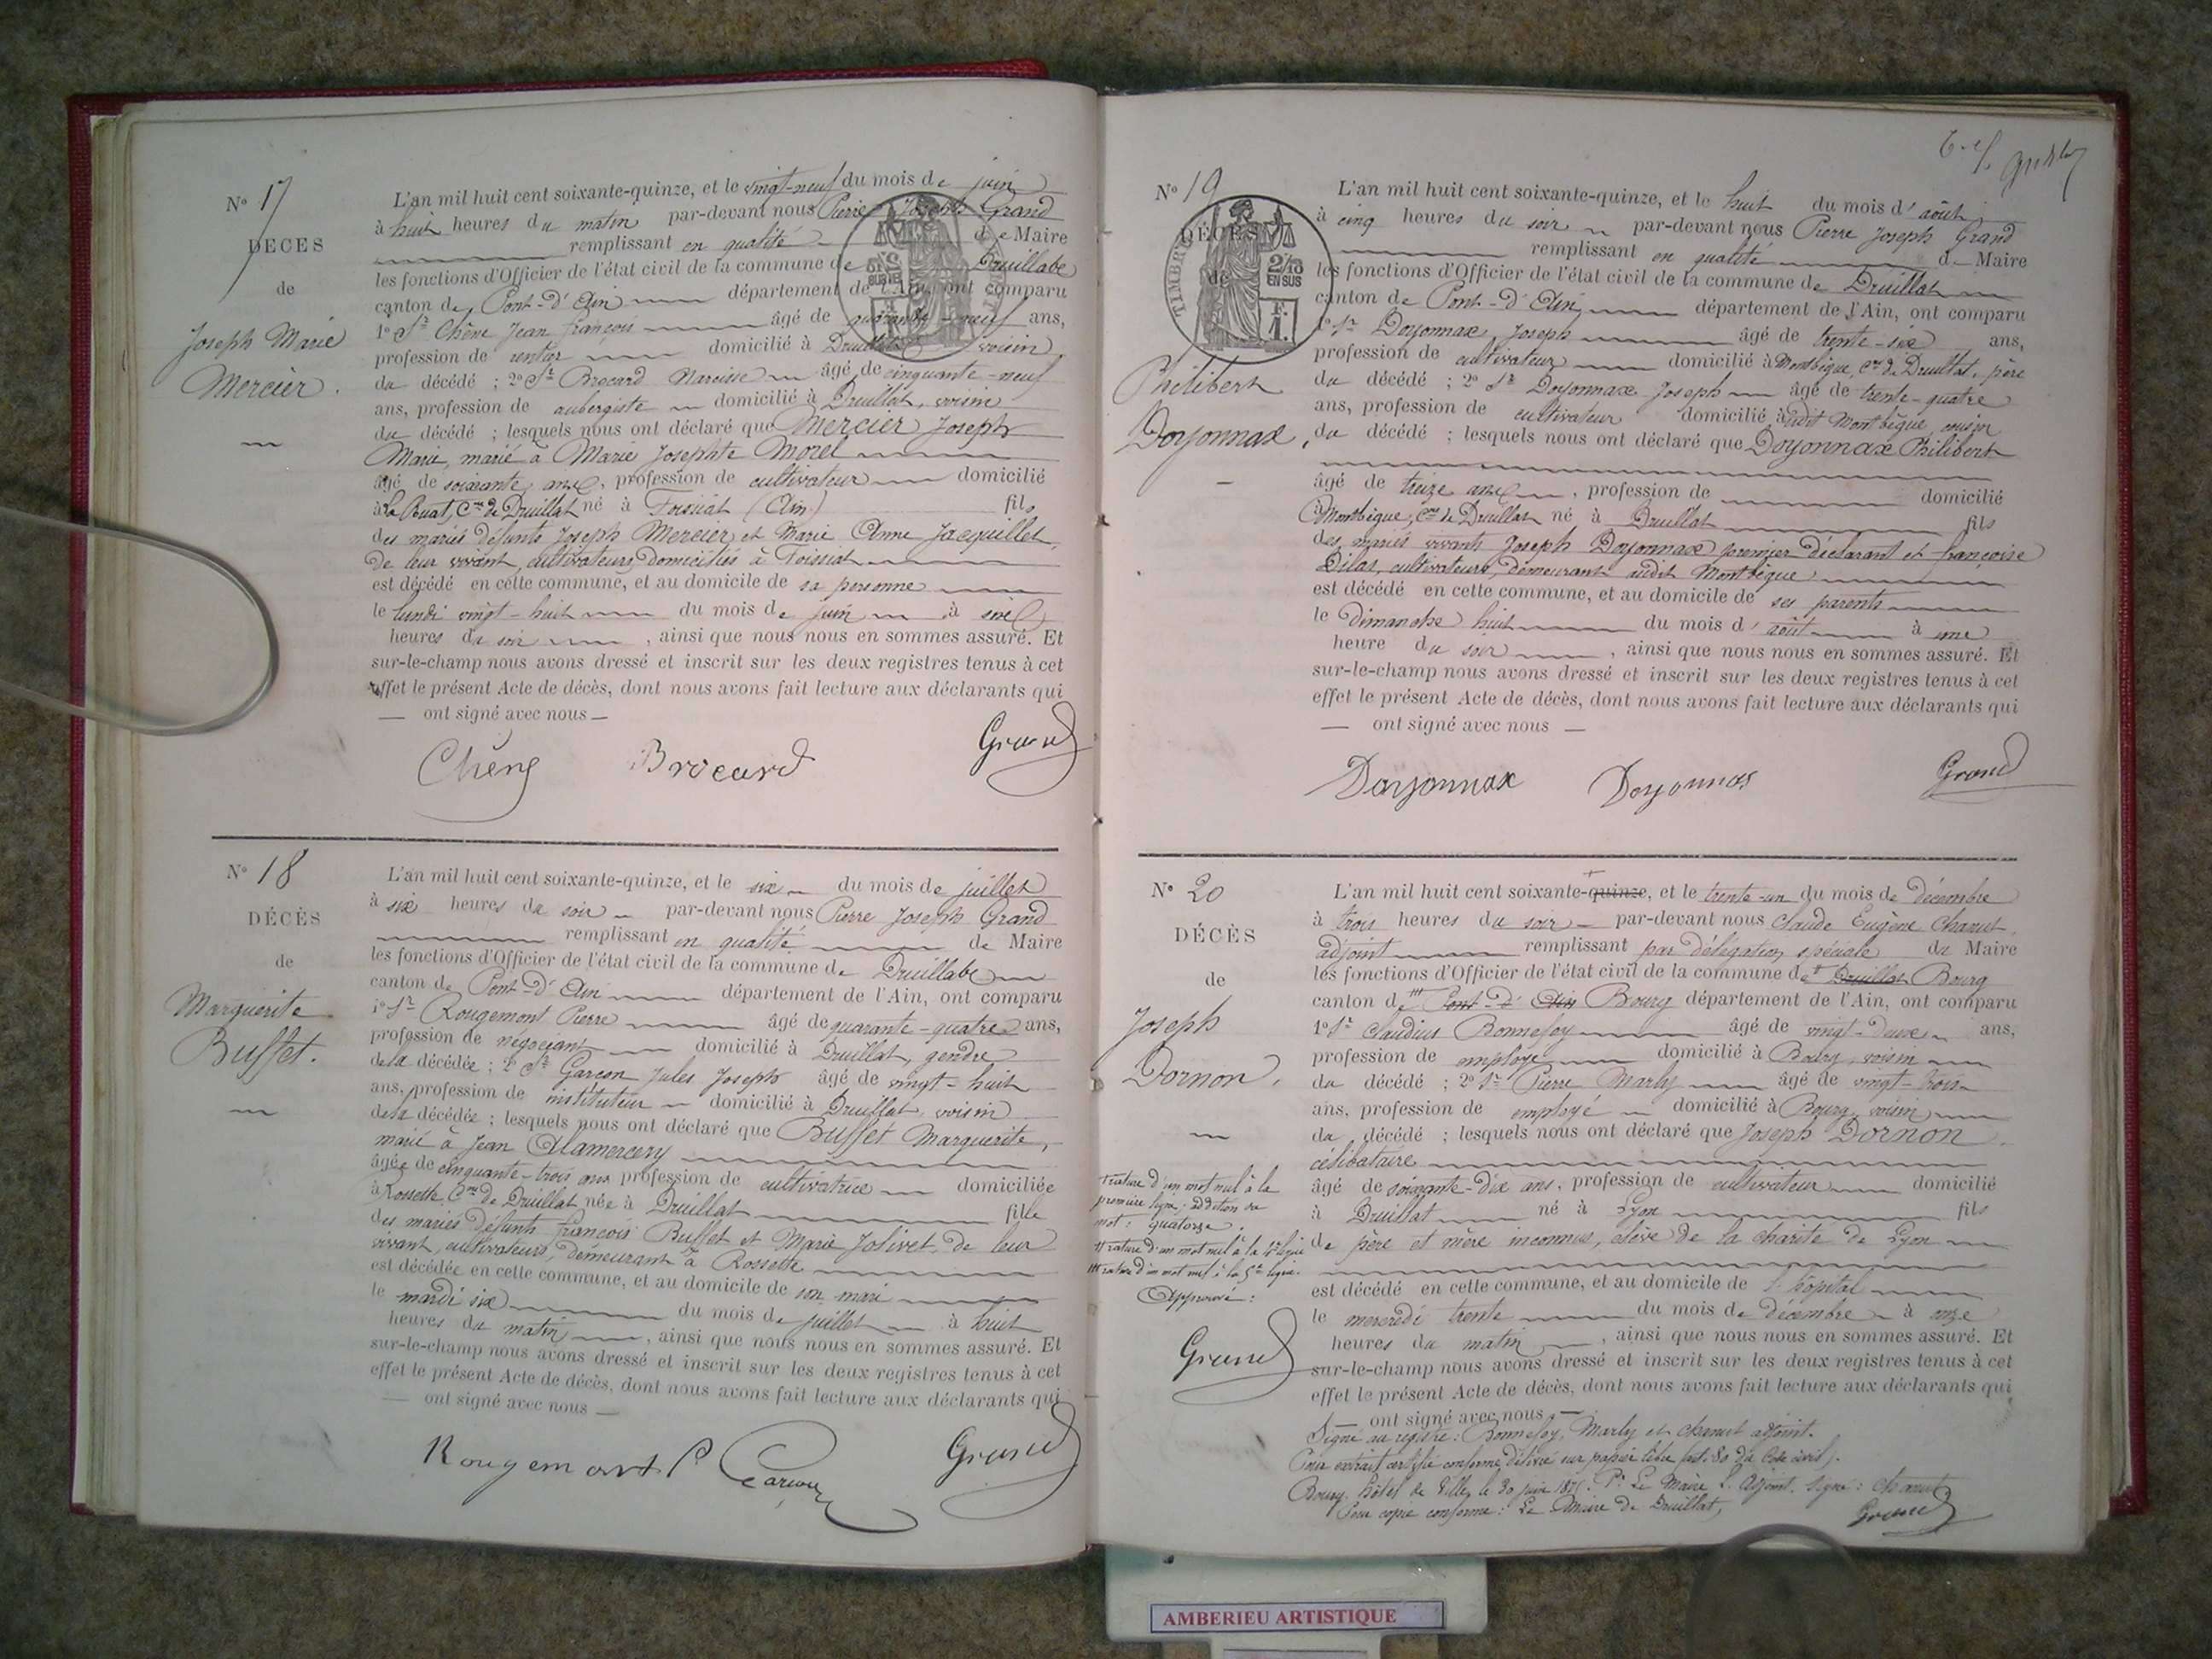 N° 17
DÉCÈS
de
Joseph Marie
Mercier.
L'an mil huit cent soixante-quinze, et le vingt-neuf du mois de juin
à huit heures du matin par-devant nous Pierre Joseph Grand
remplissant en qualité de Maire
les fonctions d'Officier de l'état civil de la commune de Druillat
canton de Pont-d'Ain département de l'Ain, ont comparu
1° Sr Chêne Jean François âgé de quarante-neuf ans,
profession de rentier domicilié à Druillat voisin
du décédé ; 2° Sr Brocard Narcisse âgé de cinquante-neuf
ans, profession de aubergiste domicilié à Druillat, voisin
du décédé ; lesquels nous ont déclaré que Mercier Joseph
Marie, marié à Marie Josephte Morel
âgé de soixante ans, profession de cultivateur domicilié
à la Ruat, Cne de Druillat né à Foissiat (Ain) fils
des mariés défunts Joseph Mercier et Marie Anne Jacquillet,
de leur vivant, cultivateurs domiciliés à Foissiat
est décédé en cette commune, et au domicile de sa personne
le lundi vingt-huit du mois de juin à six
heures du soir, ainsi que nous nous en sommes assuré. Et
sur-le-champ nous avons dressé et inscrit sur les deux registres tenus à cet
effet le présent Acte de décès, dont nous avons fait lecture aux déclarants qui
— ont signé avec nous —
Chêne Brocard Grand
N° 18
DÉCÈS
de
Marguerite
Buffet.
L'an mil huit cent soixante-quinze, et le six du mois de juillet
à six heures du soir par-devant nous Pierre Joseph Grand
remplissant en qualité de Maire
les fonctions d'Officier de l'état civil de la commune de Druillat
canton de Pont-d'Ain département de l'Ain, ont comparu
1° Sr Rougemont Pierre âgé de quarante-quatre ans,
profession de négociant domicilié à Druillat, gendre
de la décédée ; 2° Sr Garcon Jules Joseph âgé de vingt-huit
ans, profession de instituteur domicilié à Druillat, voisin
de la décédée ; lesquels nous ont déclaré que Buffet Marguerite,
marié à Jean Alamercery
âgée de cinquante-trois ans profession de cultivatrice domiciliée
à Rossette Cne de Druillat née à Druillat fille
des mariés défunts François Buffet et Marie Jolivet, de leur
vivant, cultivateurs, demeurant à Rossette
est décédée en cette commune, et au domicile de son mari
le mardi six du mois de juillet à huit
heures du matin, ainsi que nous nous en sommes assuré. Et
sur-le-champ nous avons dressé et inscrit sur les deux registres tenus à cet
effet le présent Acte de décès, dont nous avons fait lecture aux déclarants qui
— ont signé avec nous —
Rougemont P Garcon Grand
N° 19
DÉCÈS
de
TIMBRE
2/10
EN SUS
Philibert
Doyonnax.
L'an mil huit cent soixante-quinze, et le huit du mois d'août
à cinq heures du soir par-devant nous Pierre Joseph Grand
remplissant en qualité de Maire
les fonctions d'Officier de l'état civil de la commune de Druillat
canton de Pont-d'Ain département de l'Ain, ont comparu
1° Sr Doyonnax Joseph âgé de trente-six ans,
profession de cultivateur domicilié à Montbègue, Cne de Druillat, père
du décédé ; 2° Sr Doyonnax Joseph âgé de trente-quatre
ans, profession de cultivateur domicilié audit Montbègue, cousin
du décédé ; lesquels nous ont déclaré que Doyonnax Philibert
âgé de treize ans, profession de domicilié
à Montbègue, Cne de Druillat né à Druillat fils
des mariés vivants Joseph Doyonnax premier déclarant et Françoise
Dilas, cultivateurs, demeurant audit Montbègue
est décédé en cette commune, et au domicile de ses parents
le dimanche huit du mois d'août à une
heure du soir, ainsi que nous nous en sommes assuré. Et
sur-le-champ nous avons dressé et inscrit sur les deux registres tenus à cet
effet le présent Acte de décès, dont nous avons fait lecture aux déclarants qui
— ont signé avec nous —
Doyonnax Doyonnax Grand
N° 20
DÉCÈS
de
Joseph
Dornon.
† rature d'un mot nul à la
première ligne; addition du
mot: quatorze.
†† rature d'un mot nul à la 4e ligne
††† rature d'un mot nul à la 5e ligne.
Approuvé:
Grand
L'an mil huit cent soixante-quinze, et le trente-un du mois de décembre
à trois heures du soir par-devant nous Claude Eugène Chanut
adjoint remplissant par délégation spéciale du Maire
les fonctions d'Officier de l'état civil de la commune de Druillat Bourg
canton de Pont-d'Ain Bourg département de l'Ain, ont comparu
1° Sr Claudius Bonnefoy âgé de vingt-deux ans,
profession de employé domicilié à Bourg, voisin
du décédé ; 2° Sr Pierre Marly âgé de vingt-trois
ans, profession de employé domicilié à Bourg, voisin
du décédé ; lesquels nous ont déclaré que Joseph Dornon
célibataire
âgé de soixante-dix ans, profession de cultivateur domicilié
à Druillat né à Lyon fils
de père et mère inconnus, élève de la charité de Lyon
est décédé en cette commune, et au domicile de l'hôpital
le mercredi trente du mois de décembre à onze
heures du matin, ainsi que nous nous en sommes assuré. Et
sur-le-champ nous avons dressé et inscrit sur les deux registres tenus à cet
effet le présent Acte de décès, dont nous avons fait lecture aux déclarants qui
— ont signé avec nous —
Signé au registre: Bonnefoy, Marly et Chanut adjoint.
Pour extrait certifié conforme, délivré sur papier libre (art. 80 du Code civil).
Bourg, hôtel de Ville, le 30 juin 1875. Pr Le Maire l'adjoint, signé: Chanut
Pour copie conforme: Le Maire de Druillat,
Grand
AMBERIEU ARTISTIQUE